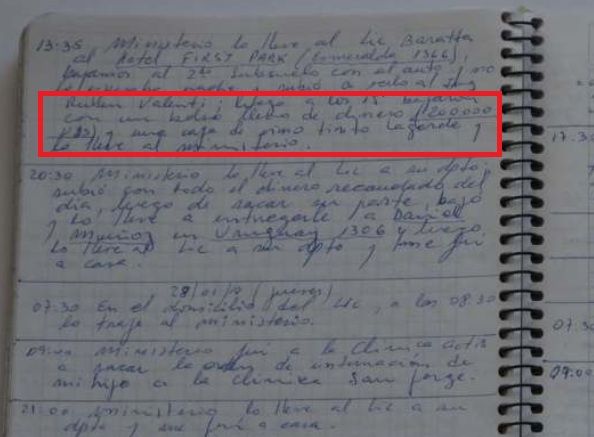 13:35 Ministerio lo lleve al Lic Baratta
al Hotel FIRST PARK (Esmeralda 1366),
bajamos al 2do Subsuelo con el auto y no
y subió a verlo al Ing
Ruben Valenti; luego a los 15' bajaron
con un bolso lleno de dinero (200.000
y una caja de vino tinto Lagarde y
lo lleve al ministerio.
20:30 Ministerio lo lleve al Lic a su dpto,
subió con todo el dinero recaudado del
día, luego de sacar su parte, bajó
y lo lleve a entregarle a Daniel
Muñoz en Uruguay 1306 y luego
lo lleve al Lic a su dpto y me fui
a casa.
28/01/10 (jueves)
07:30 En el domicilio del Lic, a las 08:30
lo traje al ministerio.
09:00 Ministerio fui a la Clinica
a sacar la orden de internación de
mi hijo a la clinica San Jorge.
21:00 Ministerio lo lleve al Lic a su
dpto y me fui a casa.
17:30
07:30
09:00